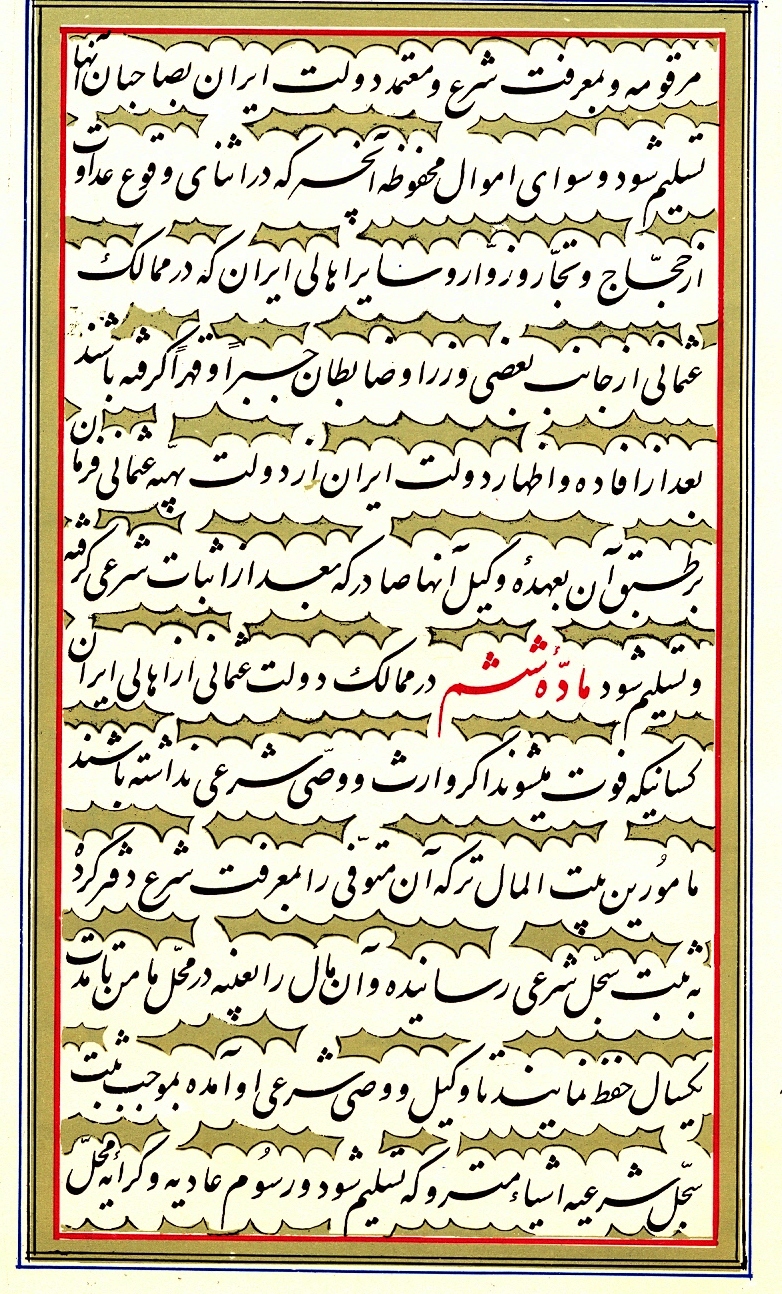 مرقومه و بمعرفت شرع و معتمد دولت ایران بصاحبان آنها
تسلیم شود و سوای اموال محفوظه آنچه که در اثنای وقوع عداوت
از حجّاج و تجّار و زوّار و سایر اهالی ایران که در ممالک
عثمانی از جانب بعضی وزرا و ضابطان جبراً و قهراً گرفته باشند
بعد از افاده و اظهار دولت ایران از دولت بهیّه عثمانی فرمان
بر طبق آن بعهدهٔ وکیل آنها صادر که بعد از اثبات شرعی گرفته
و تسلیم شود مادّهٔ ششم در ممالک دولت عثمانی از اهالی ایران
کسانیکه فوت میشوند اگر وارث و وصّی شرعی نداشته باشند
مامورین بیت المال ترکه آن متوّفی را بمعرفت شرع دفتر کرده
به ثبت سجّل شرعی رسانیده و آن مال را بعینه در محّل مامن تا مدت
یکسال حفظ نمایند تا وکیل و وصی شرعی او آمده بموجب ثبت
سجّل شرعیه اشیاء متروکه تسلیم شود و رسوم عادیه و کرایه محلّ